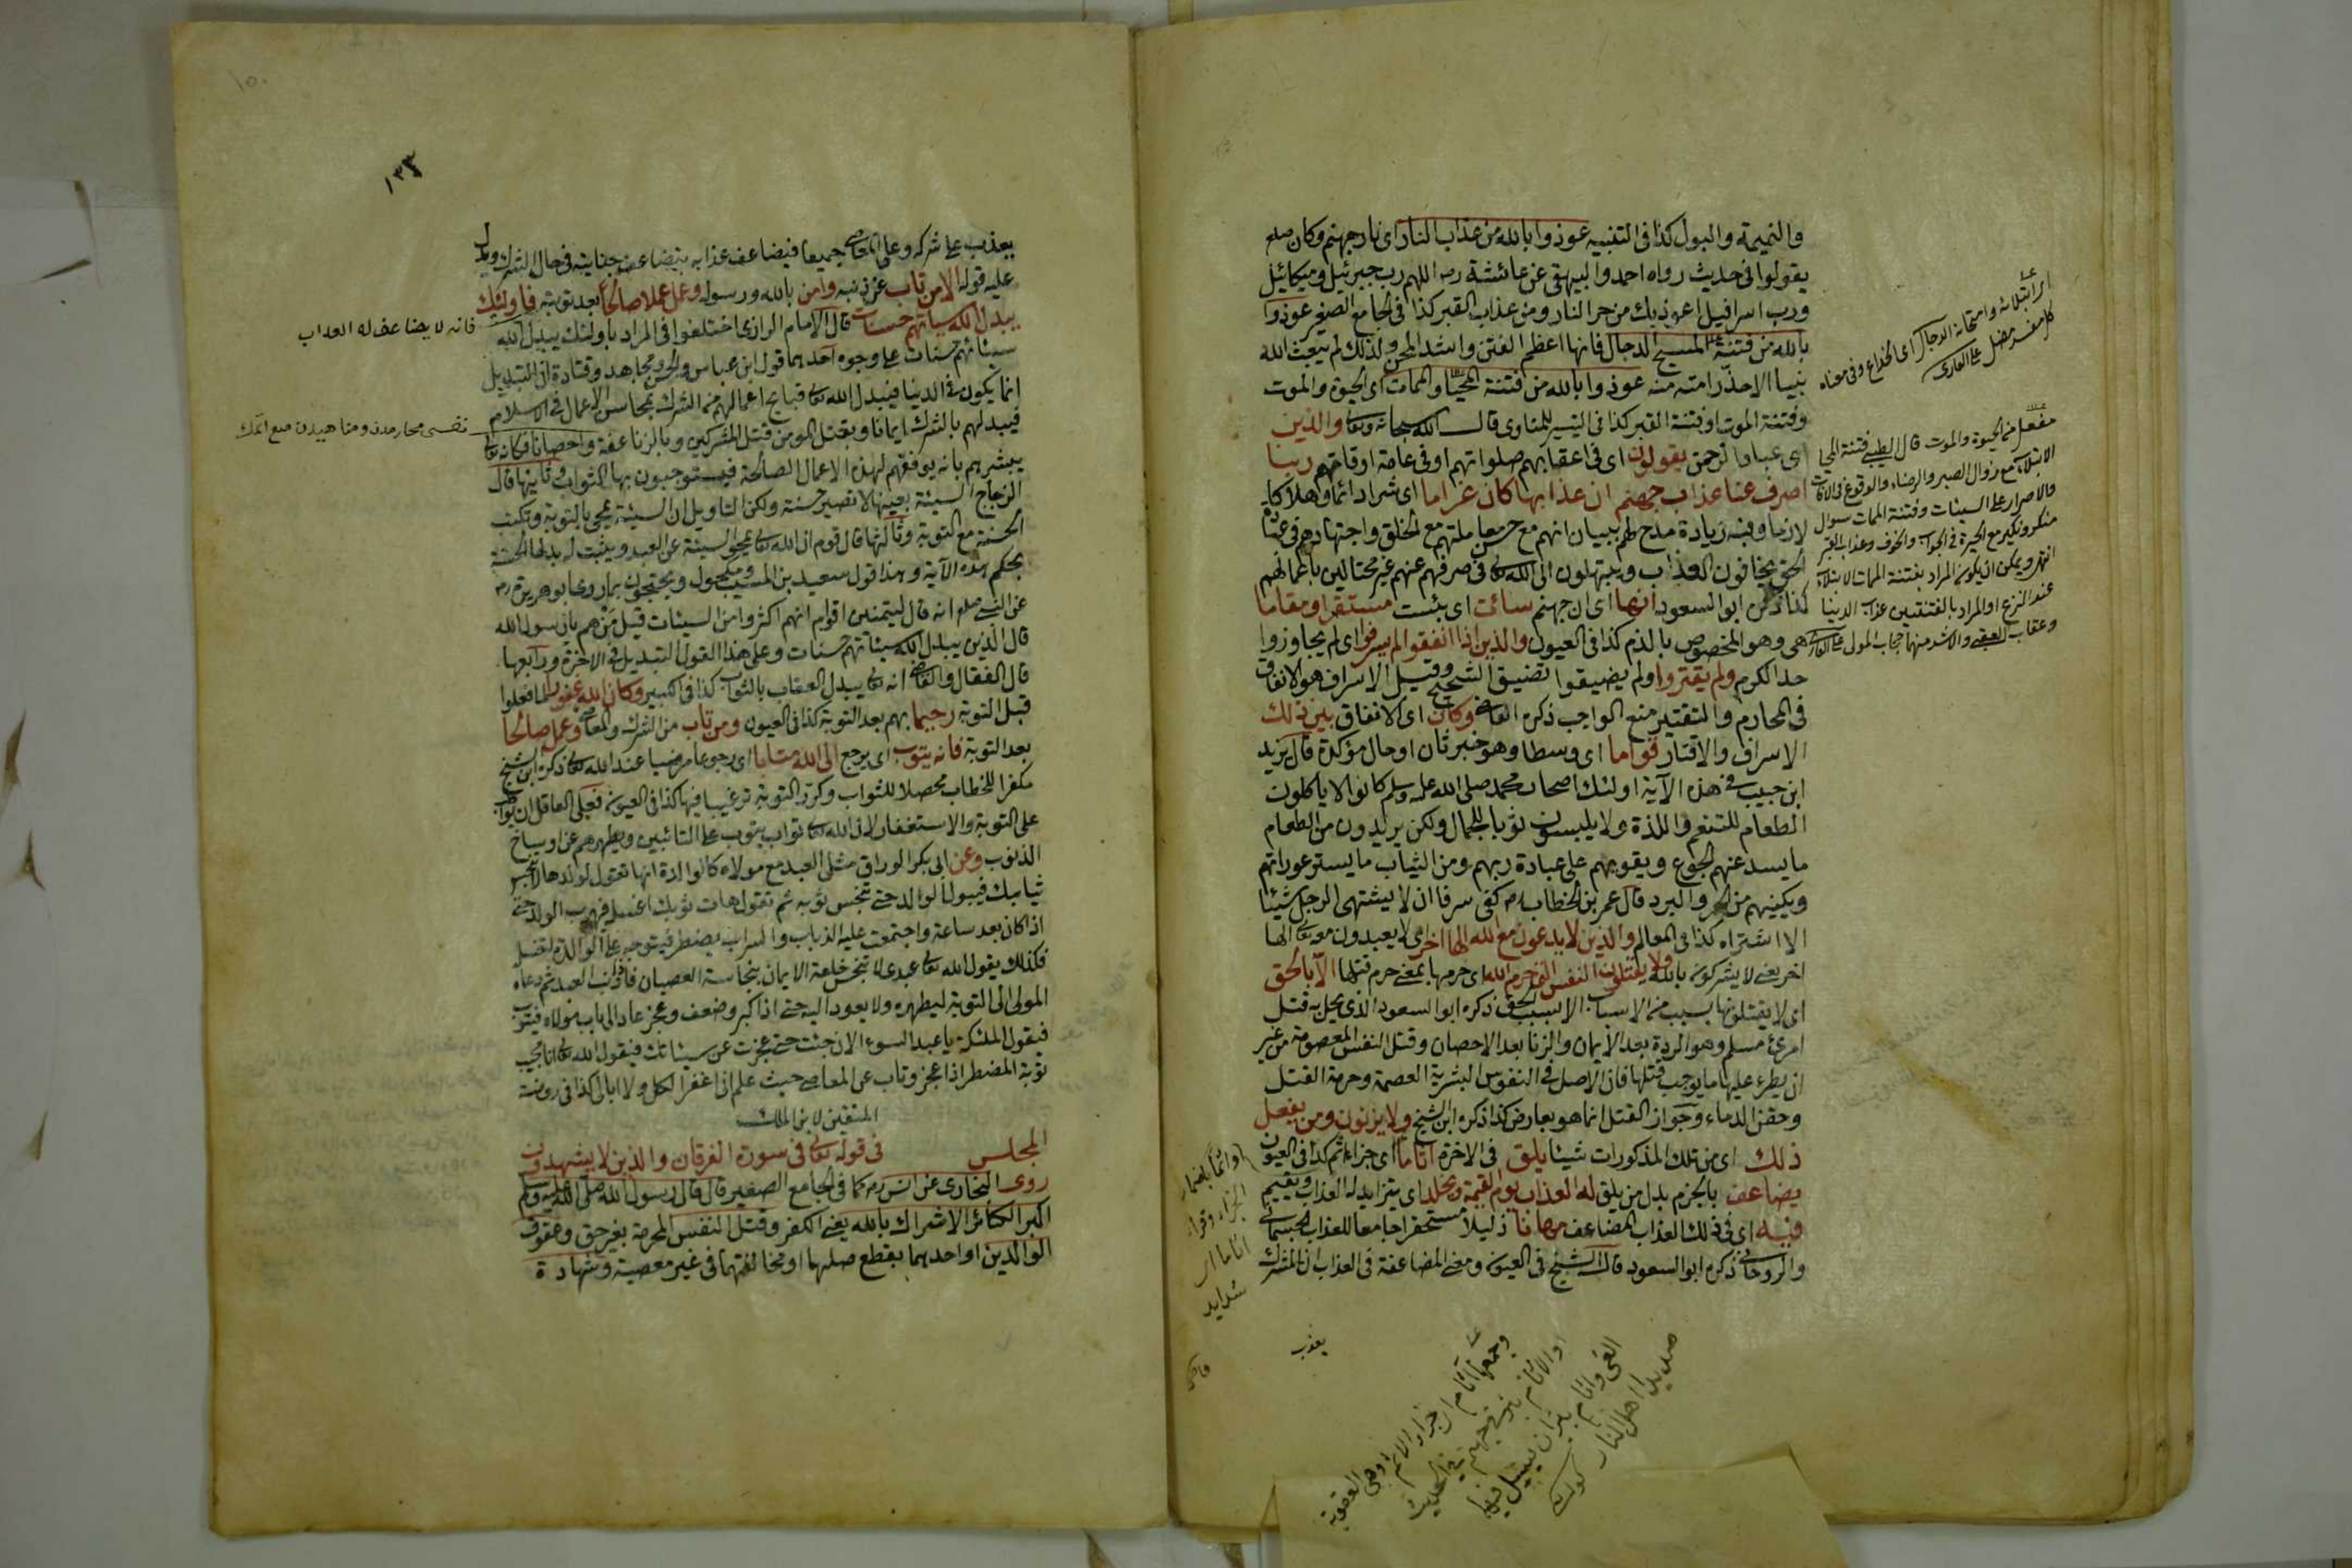 والنميمة والبول كذا فى التنبيه عوذوا بالله من عذاب النار اى نار جهنم وكان صلم
يقولوا فى حديث رواه احمد والبيهقى عن عائشة رضه اللهم رب جبرئيل وميكائيل
ورب اسرافيل اعوذ بك من حر النار ومن عذاب القبر كذا فى الجامع الصغير عوذوا
بالله من فتنة المسيح الدجال فانها اعظم الفتن واشد المحن ولذلك لم يبعث الله
نبيا الا حذر امته منه عوذوا بالله من فتنة المحيا والممات اى الحيوة والموت
وفتنة الموت او فتنة القبر كذا فى التيسير للمناوى قال الله سبحانه وتعا والذين
اى عباد الرحمن يقولون اى فى اعقابهم صلواتهم او فى عامة اوقاتهم ربنا
اصرف عنا عذاب جهنم ان عذابها كان غراما اى شرا دائما وهلاكا
لازما وفيه زيادة مدح لهم ببيان انهم مع حسن معاملتهم مع الخلق واجتهادهم فى عبادة
الحق يخافون العذاب ويبتهلون الى الله تعا فى صرفهم عنهم غير محتالين باعمالهم
كذا ذكره ابو السعود انها اى ان جهنم سائت اى بئست مستقرا ومقاما
هى وهو المخصوص بالذم كذا فى العيون والذين اذا انفقوا لم يسرفوا اى لم يجاوزوا
حد الكرم ولم يقتروا ولم يضيقوا تضييق الشحيح وقيل الاسراف هو الانفاق
فى المحارم والتقتير منع الواجب ذكره القاضى وكان اى الانفاق بين ذلك
الاسراف والاقتار قواما اى وسطا وهو خبر ثان او حال مؤكدة قال يزيد
ابن حبيب فى هذه الآية اولئك اصحاب محمد صلى الله عليه وسلم كانوا لا ياكلون
الطعام للتنعم واللذة ولا يلبسون ثوبا للجمال ولكن يريدون من الطعام
ما يسد عنهم الجوع ويقويهم على عبادة ربهم ومن الثياب ما يستر عوراتهم
ويكنيهم من الحر والبرد قال عمر بن الخطاب رضه كفى سرفا ان لا يشتهى الرجل شيئا
الا اشتراه كذا فى المعالم والذين لا يدعون مع الله الها اخر اى لا يعبدون معه تعا الها
اخر يعنى لا يشركون بالله ولا يقتلون النفس التى حرم الله اى حرمها بمعنى حرم قتلها الا بالحق
اى لا يقتلونها بسبب من الاسباب الا بسبب الحق ذكره ابو السعود الذى يحل به قتل
امرئ مسلم وهو الردة بعد الايمان والزنا بعد الاحصان وقتل النفس المعصومة من غير
ان يطرء عليها ما يوجب قتلها فان الاصل فى النفوس البشرية العصمة وحرمة القتل
وحقن الدماء وجواز القتل انما هو بعارض كذا ذكره ابن الشيخ ولا يزنون ومن يفعل
ذلك اى من تلك المذكورات شيئا يلق فى الاخرة اثاما اى جزاء اثم كذا فى العيون
يضاعف بالجزم بدل من يلق له العذاب يوم القيمة ويخلد اى يتزايد له العذاب ويقيم
فيه اى فى ذلك العذاب المضاعف مهانا ذليلا مستحقرا جامعا للعذاب الجسمانى
والروحانى ذكره ابو السعود قال الشيخ فى العيون ومعنى المضاعفة فى العذاب ان المشرك
يعذب
مفعل من الحيوة والموت قال الطيبى فتنة المحيا
الابتلاء مع زوال الصبر والرضاء والوقوع فى الافات
والاصرار على السيئات وفتنة الممات سوال
منكر ونكير مع الحيرة فى الجواب والخوف وعذاب القبر
انتهى ويمكن ان يكون المراد بفتنة الممات الابتلاء
عند النزع او المراد بالفتنتين عذاب الدنيا
وعقاب العقبى والاشد منهما حجاب المولى على القارى
اثاما اى
شدايد
وجمعها آثام اى جزاء الاثم او هى العقوبة
صديد اهل النار
١٣٣
١٥٠
يعذب على شركه وعلى المعاصى جميعا فيضاعف عذابه بتضاعف جنايته فى حال الشرك ويدل
عليه قوله الا من تاب عن ذنبه وامن بالله ورسوله وعمل عملا صالحا بعد توبته فاولئك
يبدل الله سياتهم حسنات قال الامام الرازى اختلفوا فى المراد باولئك يبدل الله
سيئاتهم حسنات على وجوه احدها قول ابن عباس والحسن ومجاهد وقتادة ان التبديل
انما يكون فى الدنيا فيبدل الله تعا قبايح اعمالهم فى الشرك بمحاسن الاعمال فى الاسلام
فيبدلهم بالشرك ايمانا وبقتل المومن قتل المشركين وبالزنا عفة واحصانا فكانه تعا
يبشرهم بانه يوفقهم لهذه الاعمال الصالحة فيستوجبون بها الثواب وثانيها قال
الزجاج السيئة بعينها لا تصير حسنة ولكن التاويل ان السيئة تمحى بالتوبة وتكتب
الحسنة مع التوبة وثالثها قال قوم ان الله تعا يمحو السيئة عن العبد ويثبت له بدلها الحسنة
بحكم هذه الآية وهذا قول سعيد بن المسيب ومكحول ويحتجون بما روى ابو هريرة رضه
عن النبى صلم انه قال ليتمنين اقوام انهم اكثروا من السيئات قيل من هم يا رسول الله
قال الذين يبدل الله سيئاتهم حسنات وعلى هذا القول التبديل فى الاخرة ورابعها
قال القفال والقاضى انه تعا يبدل العقاب بالثواب كذا فى الكبير وكان الله غفورا لما فعلوا
قبل التوبة رحيما بهم بعد التوبة كذا فى العيون ومن تاب من الشرك والمعاصى وعمل صالحا
بعد التوبة فانه يتوب اى يرجع الى الله متابا اى رجوعا مرضيا عند الله تعا ذكره ابن الشيخ
مكفرا للخطاب محصلا للثواب وكرر التوبة ترغيبا فيها كذا فى العيون فعلى العاقل ان يواظب
على التوبة والاستغفار لان الله تعا تواب يتوب على التائبين ويطهرهم عن اوساخ
الذنوب وعن ابى بكر الوراق مثل العبد مع مولاه كالوالدة انها تقول لولدها لا تنجس
ثيابك فيبول الولد حتى تنجس ثوبه ثم تقول هات ثوبك اغسله فيهرب الولد حتى
اذا كان بعد ساعة واجتمعت عليه الذباب والتراب يضطر فيتوجه على الوالدة لتغسل
فكذلك يقول الله تعا عبدى لا تنجس خلعة الايمان بنجاسة العصيان فاذا اذنب العبد ثم دعاه
المولى الى التوبة ليطهره ولا يعود اليه حتى اذا كبر وضعف وعجز عاد الى باب مولاه فيتوب
فيقول الملئكة يا عبد السوء الان جئت حتى عجزت عن سيئاتك فيقول الله تعا انا مجيب
توبة المضطر اذا عجز وتاب عن المعاصى حيث علم انى اغفر الكل ولا ابالى كذا فى روضة
المتقين لابن الملك
المجلس فى قوله تعا فى سورة الفرقان والذين لا يشهدون
روى البخارى عن انس رضه كما فى الجامع الصغير قال قال رسول الله صلى الله عليه وسلم
اكبر الكبائر الاشراك بالله يعنى الكفر وقتل النفس المحرمة بغير حق وعقوق
الوالدين او احدهما بقطع صلتها او مخالفتهما فى غير معصية وشهادة
فانه لا يضاعف له العذاب